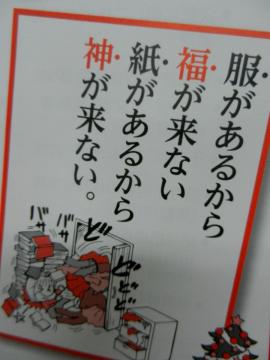 服があるから
福が来ない
紙があるから
神が来ない。
バサ
バサ
ど
ど
ど
ど